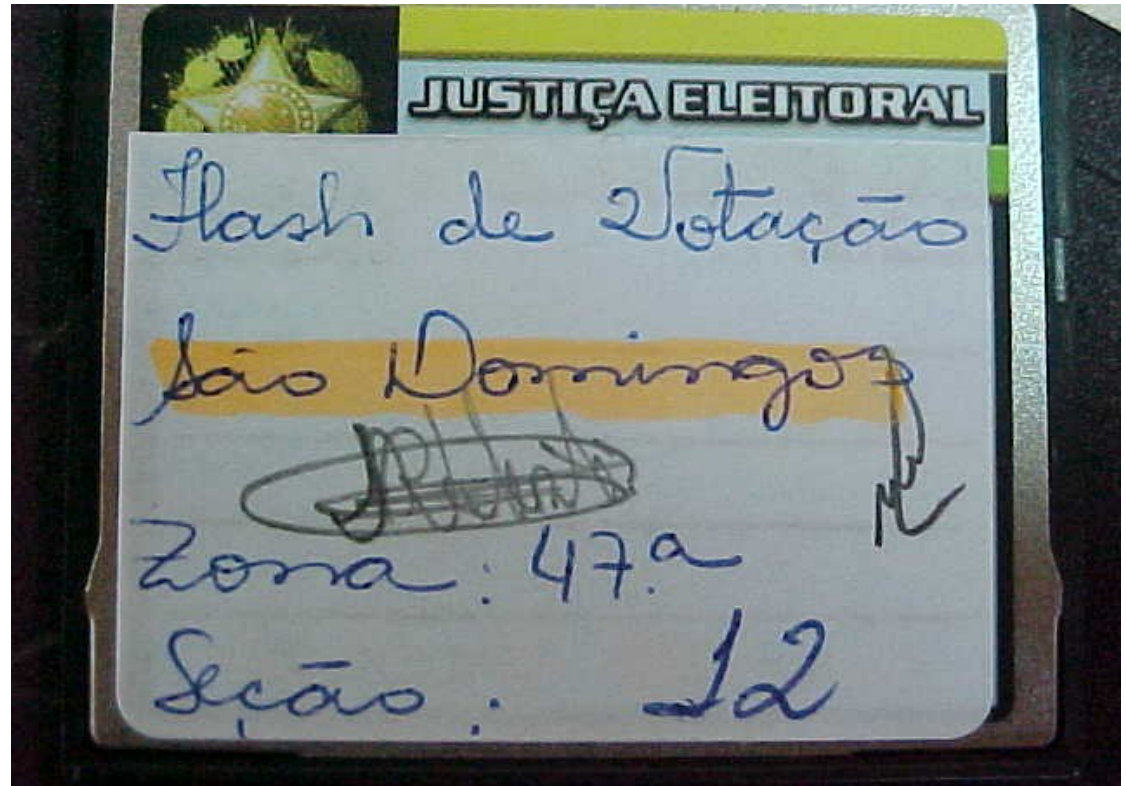 JUSTIÇA ELEITORAL
Flash de Votação
São Domingos
Zona: 47.a
Seção: 12